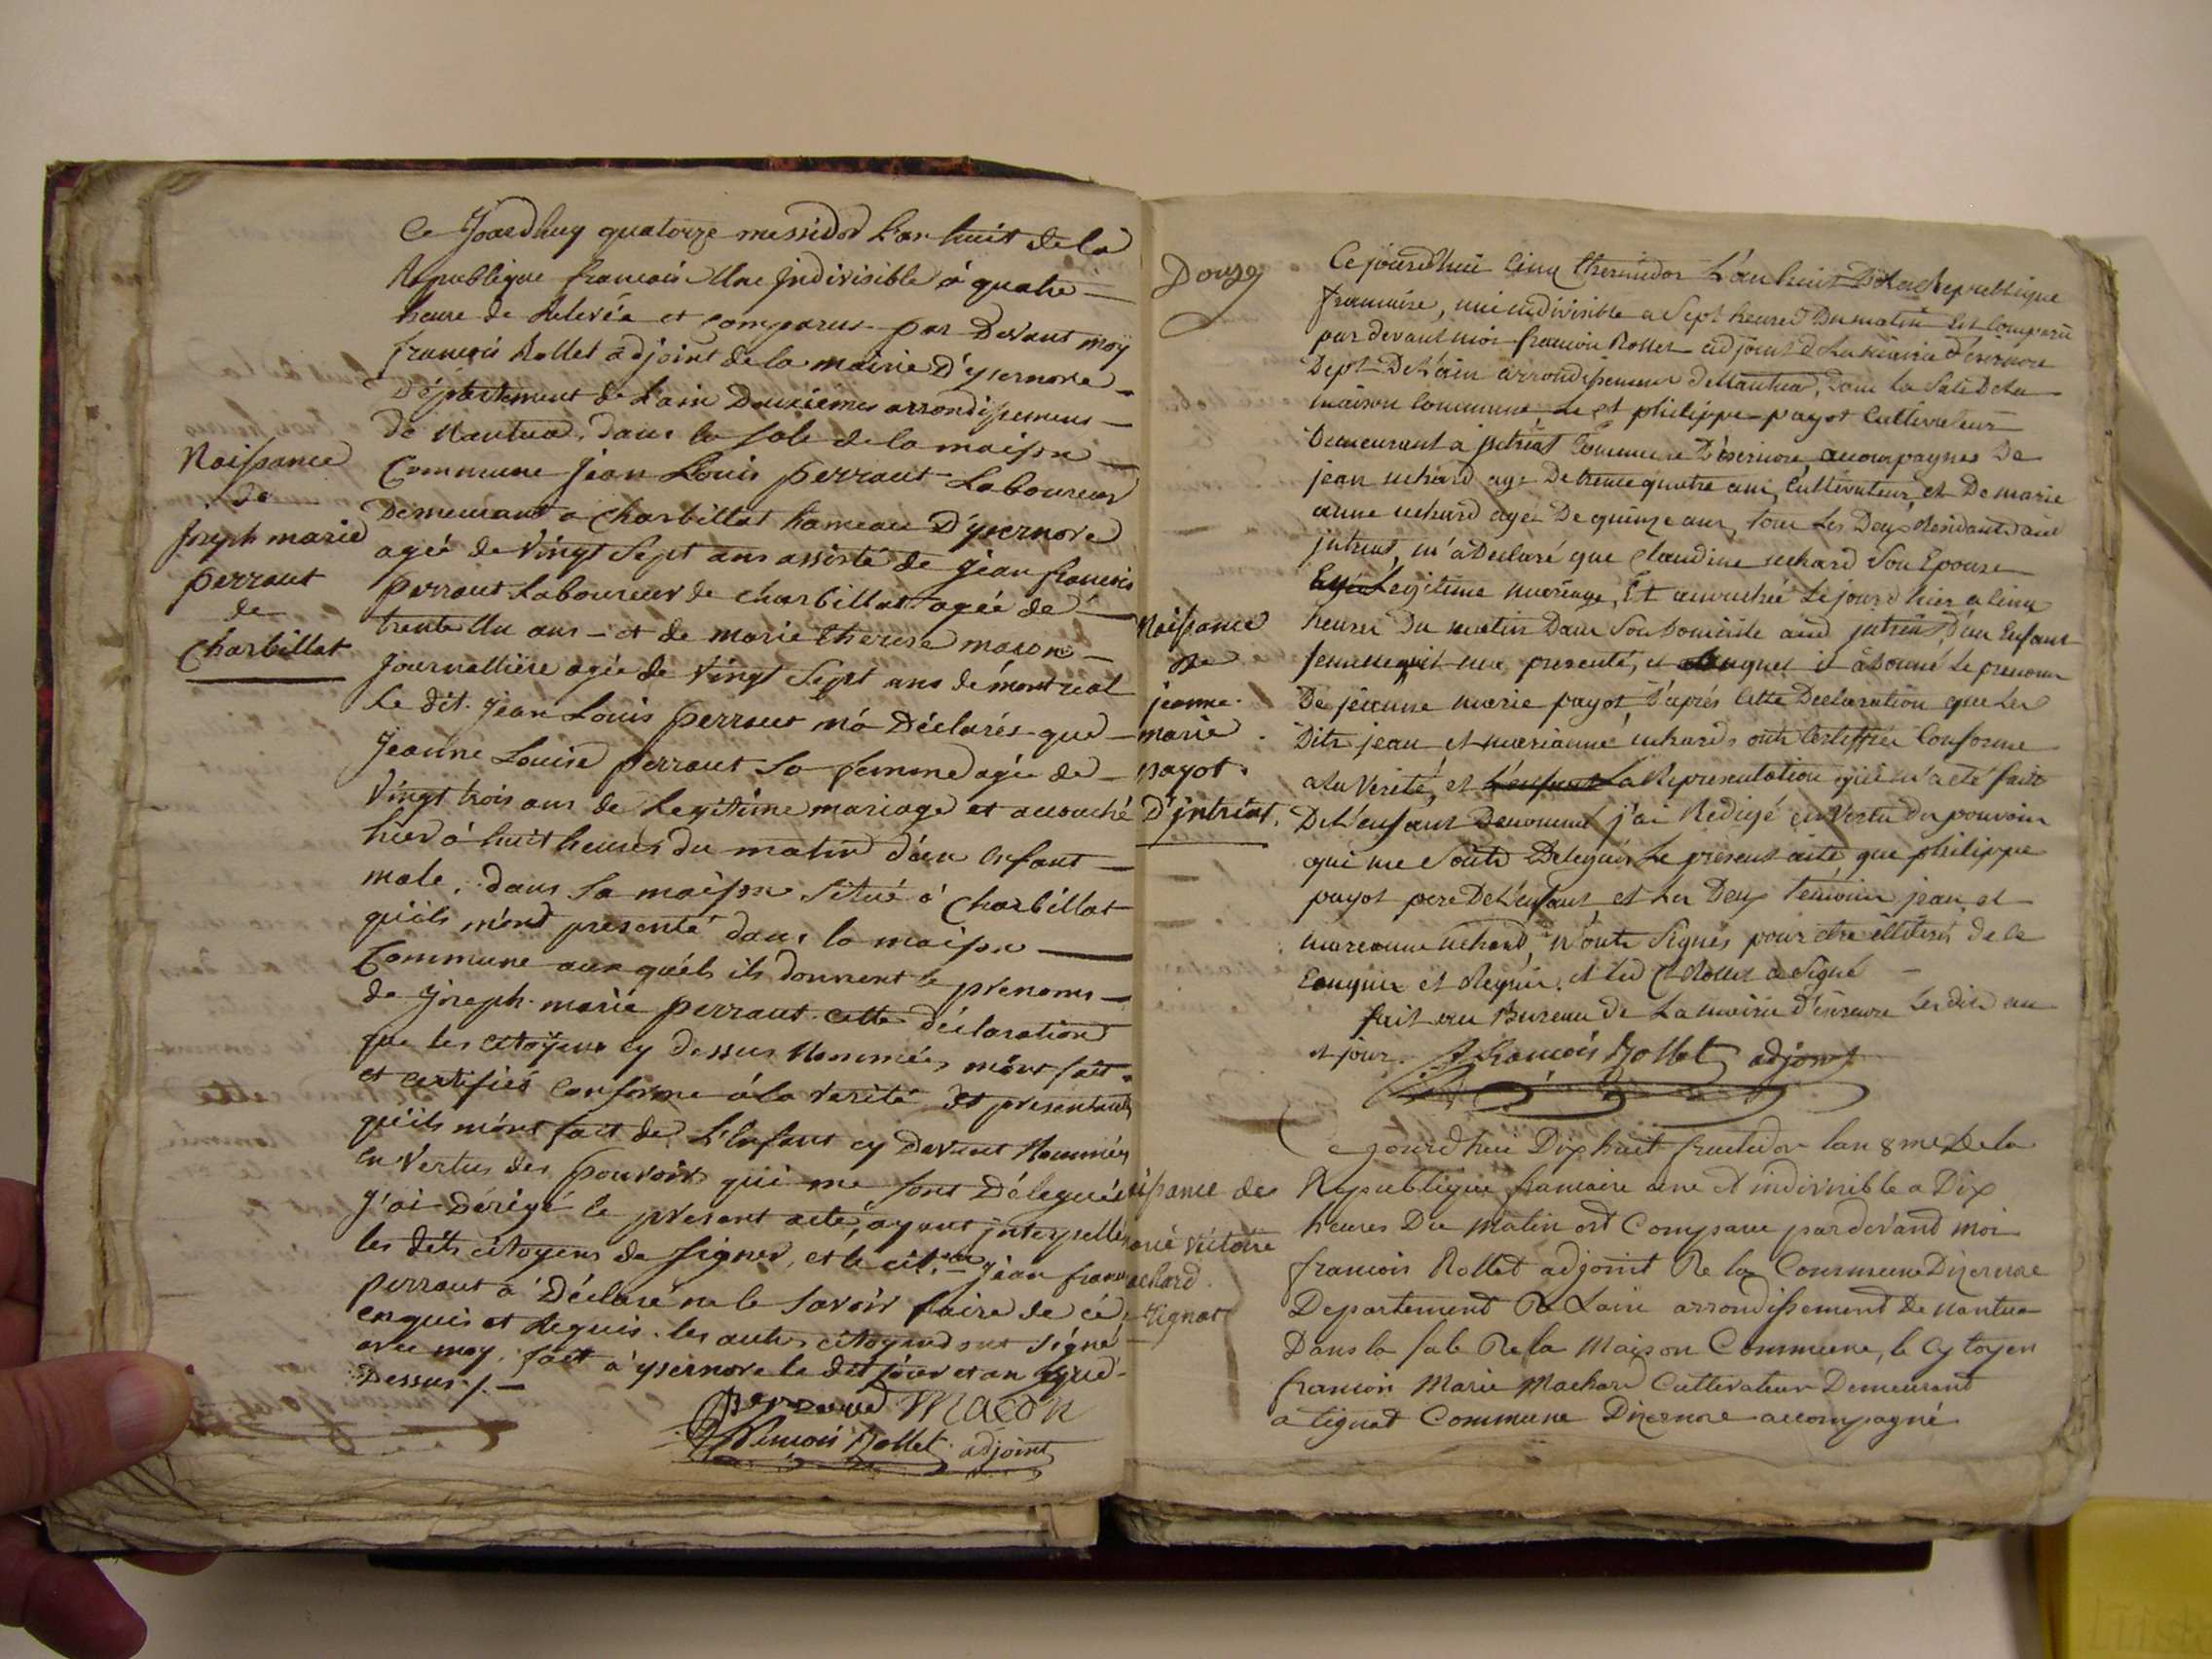 Naissance
de
Joseph marie
perraut
de
Charbillat
Ce Jourdhuy quatorze messidor L'an huit de la
Republique francois Une Jndivisible á quatre
heure de Relevée et comparus par Devant moÿ
francois Rollet adjoint de la mairie D'ysernore
Département de Lain Deuxiémes arrondissemens
de Nantua, dans la sale de la maison
Commune jean Louis perraut Laboureur
Demeurant a Charbillat hameau D'ysernore
agée de Vingt Sept ans assisté de jéan francois
perraut Laboureur de charbillat agée de
trente Un ans - et de marie therese mason
Journalliére agée de Vingt Sept ans de montreal
Le dit jean Louis perraut m'a Déclarés que
Jeanne Louise perraut Sa femme agée de
Vingt trois ans de Legitime mariage et accouché
hier á huit heures du matin d'un enfant
male, dans sa maison situé á Charbillat
qu'ils m'ont presenté dans la maison
Commune auxquels ils donnent le prenoms
de Joseph marie perraut cette déclaration
que les citoÿens cy dessus Nommées m'ont fait
et certifiés conforme á la verité et
qu'ils m'ont fait de L'Enfant cy devant Nommées
en Vertus des pouvoirs qui me sont Délegués
J'ai Dérigé le present acte, ayant jnterpellés
les dits citoyens de signer, et le cit. jean francois
perraut a Déclaré ne le savoir faire de cé
enquis et Requis. les autres citoyens ont signé
avec moy, fait á ysernore le dit jour et an que
Dessus ./. -
perraud Macon
francois Rollet adjoint
Douze
Naissance
de
jeanne
marie
payot
D'jntriat.
Ce jourd'hui Cinq thermidor L'an huit De la Republique
francaise, une indivisible a Sept heures Du matin Est Comparu
par devant moi francois Rollet adjoint de La mairie d'isernore
Dept De L'ain arrondissement de Nantua, Dans la Sale De la
maison Commune Le Ct philippe payot Cultivateur
Demeurant a jntriat Commune D'isernore, accompagnes De
jean uchard age De trente quatre ans, Cultivateur, et De marie
anne uchard agée De quinze ans, tous Les Deux Residant aud
jntriat, m'a Declaré que Claudine uchard Son Epouse
Legitime mariage, Et accouchée Le jourd hier a Cinq
heures Du matin Dans Son Domicile aud jntriat, D'un Enfant
femelle quil me presenté, et auquel il a Donné Le prenom
De jeanne marie payot, D'après Cette Declaration que Les
Dits jean et marianne uchard, onts Certiffiée Conforme
a La Verité, et La Representation qui m'a eté faite
De L'enfant Denommé j'ai Redigé en Vertu Du pouvoir
qui me Sonts Delegués Le present acte que philippe
payot pere De L'enfant, et Les Deux temoins jean et
mareanne uchard, N'onts Signés pour etre illiterés de ce
Enquis et Requis, et Led Ct Rollet a Signé
fait au Bureau De La mairie d'isernore Lesdits an
et jour. francois Rollet adjoint
issance de
arie Victoire
achard
tignat
Ce jourd'hui Dix huit fructidor lan 8me De la
Republique francaise une et indivisible a Dix
heures Du Matin est Comparu pardevant moi
francois Rollet adjoint De la Commune Dizernore
Departement De Lain arrondissement de nantua
Dans la sale De la Maison Commune, le Cytoyen
francois Marie Machard Cultivateur Demeurant
a tignat Commune Dizernore accompagné